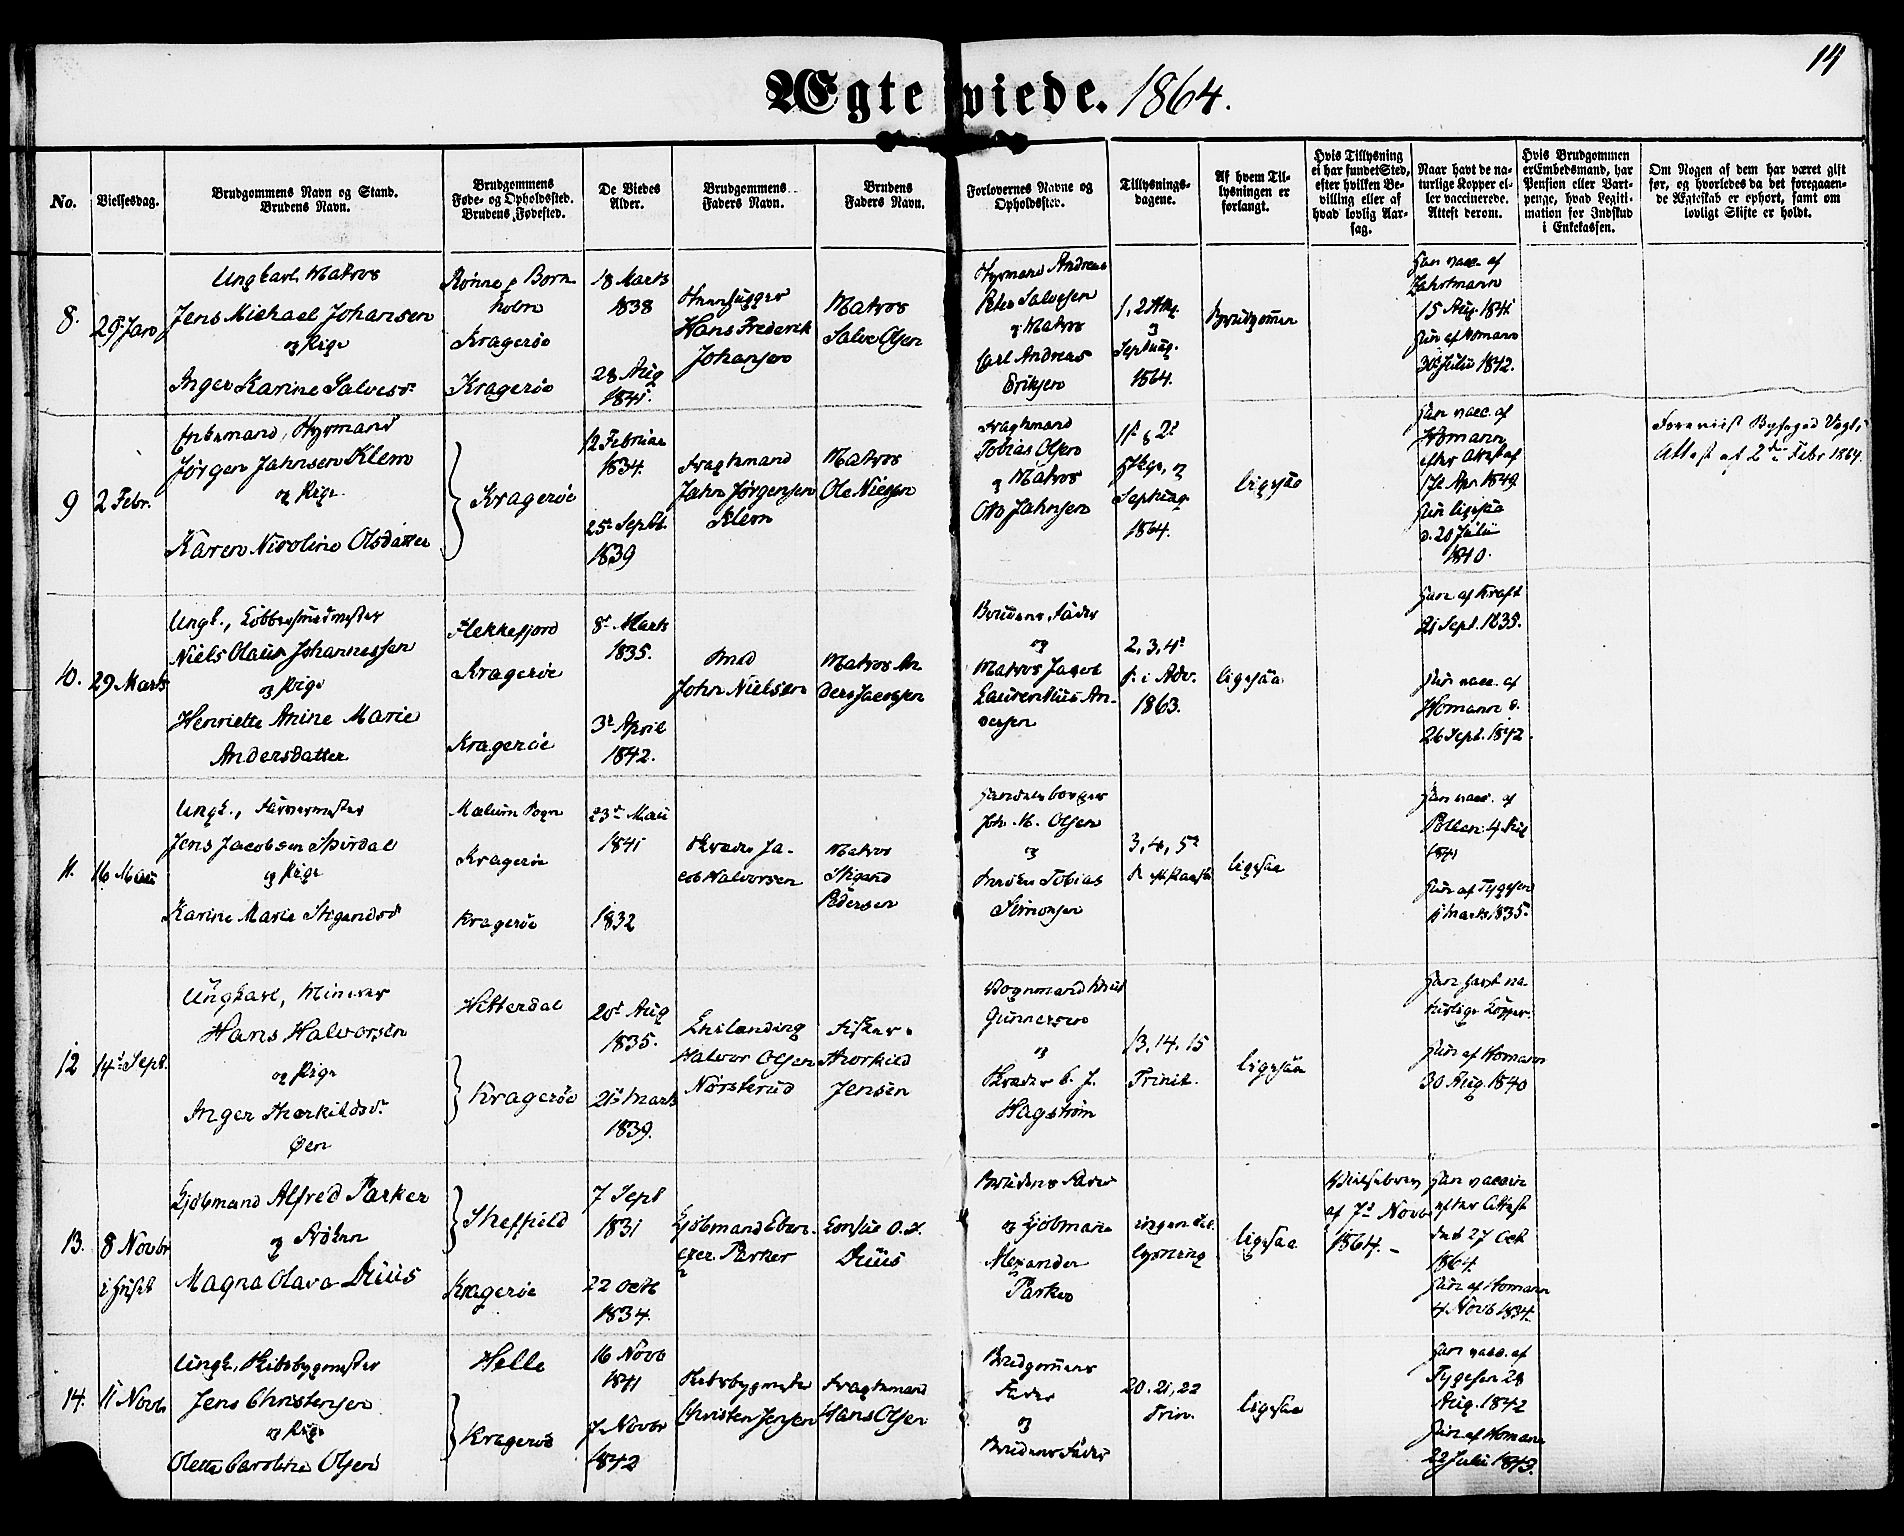 14
Ægteviede. 1864.
No.
Vielsesdag.
Brudgommens Navn og Stand.
Brudens Navn.
Brudgommens
Føde- og Opholdssted.
Brudens Fødested.
De Viedes
Alder.
Brudgommens
Faders Navn.
Brudens
Faders Navn.
Forlovernes Navne og
Opholdssted.
Tillysnings-
dagene.
Af hvem Til-
lysningen er
forlangt.
Hvis Tillysning
ei har fundet Sted,
efter hvilken Be-
villing eller af
hvad lovlig Aar-
sag.
Naar havt de na-
turlige Kopper el-
ler vaccinerede.
Attest derom.
Hvis Brudgommen
er Embedsmand, har
Pension eller Vart-
penge, hvad Legiti-
mation for Indskud
i Enkekassen.
Om Nogen af dem har været gift
før, og hvorledes da det foregaaen-
de Ægteskab er ophørt, samt om
lovligt Skifte er holdt.
8.
29 Jan
Ungkarl Matros
Jens Michael Johansen
og Pige
Inger Karine Salvesd.
Rønne p Born
holm
Kragerøe
Kragerøe
18 Marts
1838
28 Aug
1841.
Hans Frederik
Johansen
Matros
Salve Olsen
Styrmand Andreas
Peter Salvesen
og Matros
Carl Andreas
Eriksen
1, 2
og
Septuag.
1864.
Brudgommen
Han vacc. af
Zahrtmann
15 Aug. 1841
Hun af Homann
30 Julii 1842.
9
2 Febr.
Enkemand, Styrmand
Jørgen Jahnsen Klem
og Pige
Karen Nicoline Olsdatter
Kragerøe
12 Februar
1834.
25 Septb.
1839
Fragtemand
Jahn Jørgensen
Klem
Matros
Ole Nielsen
Fragtmand
Tobias Olsen
og Matros
Ole Jahnsen
og
Septuag
1864.
ligesaa
Han vacc. af
Homann
efter Attest af
17 Apr 1849
Hun ligesaa
d. 20 Julii
1840.
Foreviist Byfoged Vogts
Attest af 2den Febr 1864.
10.
29 Marts
Ungk., Kobbersmedmester
Niels Olaus Johannessen
og Pige
Henriette Anine Marie
Andersdatter
Flekkefjord
Kragerøe
Kragerøe
8 Marts
1835.
3 April
1842.
Smed
John Nielsen
Matros An
ders Jacobsen
Brudens Fader
og
Matros Jacob
Laurentius An-
dersen
2, 3, 4
S. i Adv.
1863.
ligesaa
Han af Kraft
21 Sept. 1835.
Hun vacc. af
Homann d.
26 Sept. 1842.
11.
16 Maii
Ungk., Farvermester
Jens Jacobsen Spirdal
og Pige
Karine Marie Stigandsd
Mælum Sogn
Kragerøe
Kragerøe
23 Maii
1841
1832
Skræder Ja-
cob Halvorsen
Matros
Stigand
Pedersen
Handelsborger
Joh. M. Olsen
og
Tobias
Simonsen
3, 4, 5
S. eft Paaske
ligesaa
Han vacc. af
1841
Hun af Tygesen
Marts 1835.
12
14 Sept.
Ungkarl, Minerer
Hans Halvorsen
og Pige
Inger Thorkildsd.
Øen
Hitterdal
Kragerøe
20 Aug
1835.
21 Marts
1839.
Halvor Olsen
Nørsterud
Fisker
Thorkild
Jensen
Vognmand Knud
Gunnersen
og
Skræder C. J.
Hagstrøm
13, 14, 15
Trinit.
ligesaa
Han havt na
turlige Kopper.
Hun af Homann
30 Aug. 1840
13.
8 Novbr
i Huset
Kjøbmand Alfred Parker
og Frøken
Magna Olava Diüs
Sheffield
Kragerøe
7 Sept
1831
22 Octb
1834.
Kjøbmand Eben
ezer Parker
O. L.
Diüs
Brudens Fader
og Kjøbmand
Alexander
Parker
ingen til
lysning
ligesaa
Vielsesbrev
af 7 Novb
1864. –
Han vaccin
efter Attest
27 Oct
1864.
Hun af Homann
4 Novb 1834
14.
11 Novb
Ungk., Skibsbygmester
Jens Christensen
og Pige
Olette Caroline Olsen
Helle
Kragerøe
16 Novb
1841
7 Novbr
1842
Skibsbygmester
Christen Jensen
Fragtemand
Hans Olsen
Brudgommens
Fader
og
Brudens Fader
20, 21, 22
Trin.
ligesaa
Han vacc. af
Tygesen 28
Aug. 1842
Hun af Homann
22 Julii 1843.